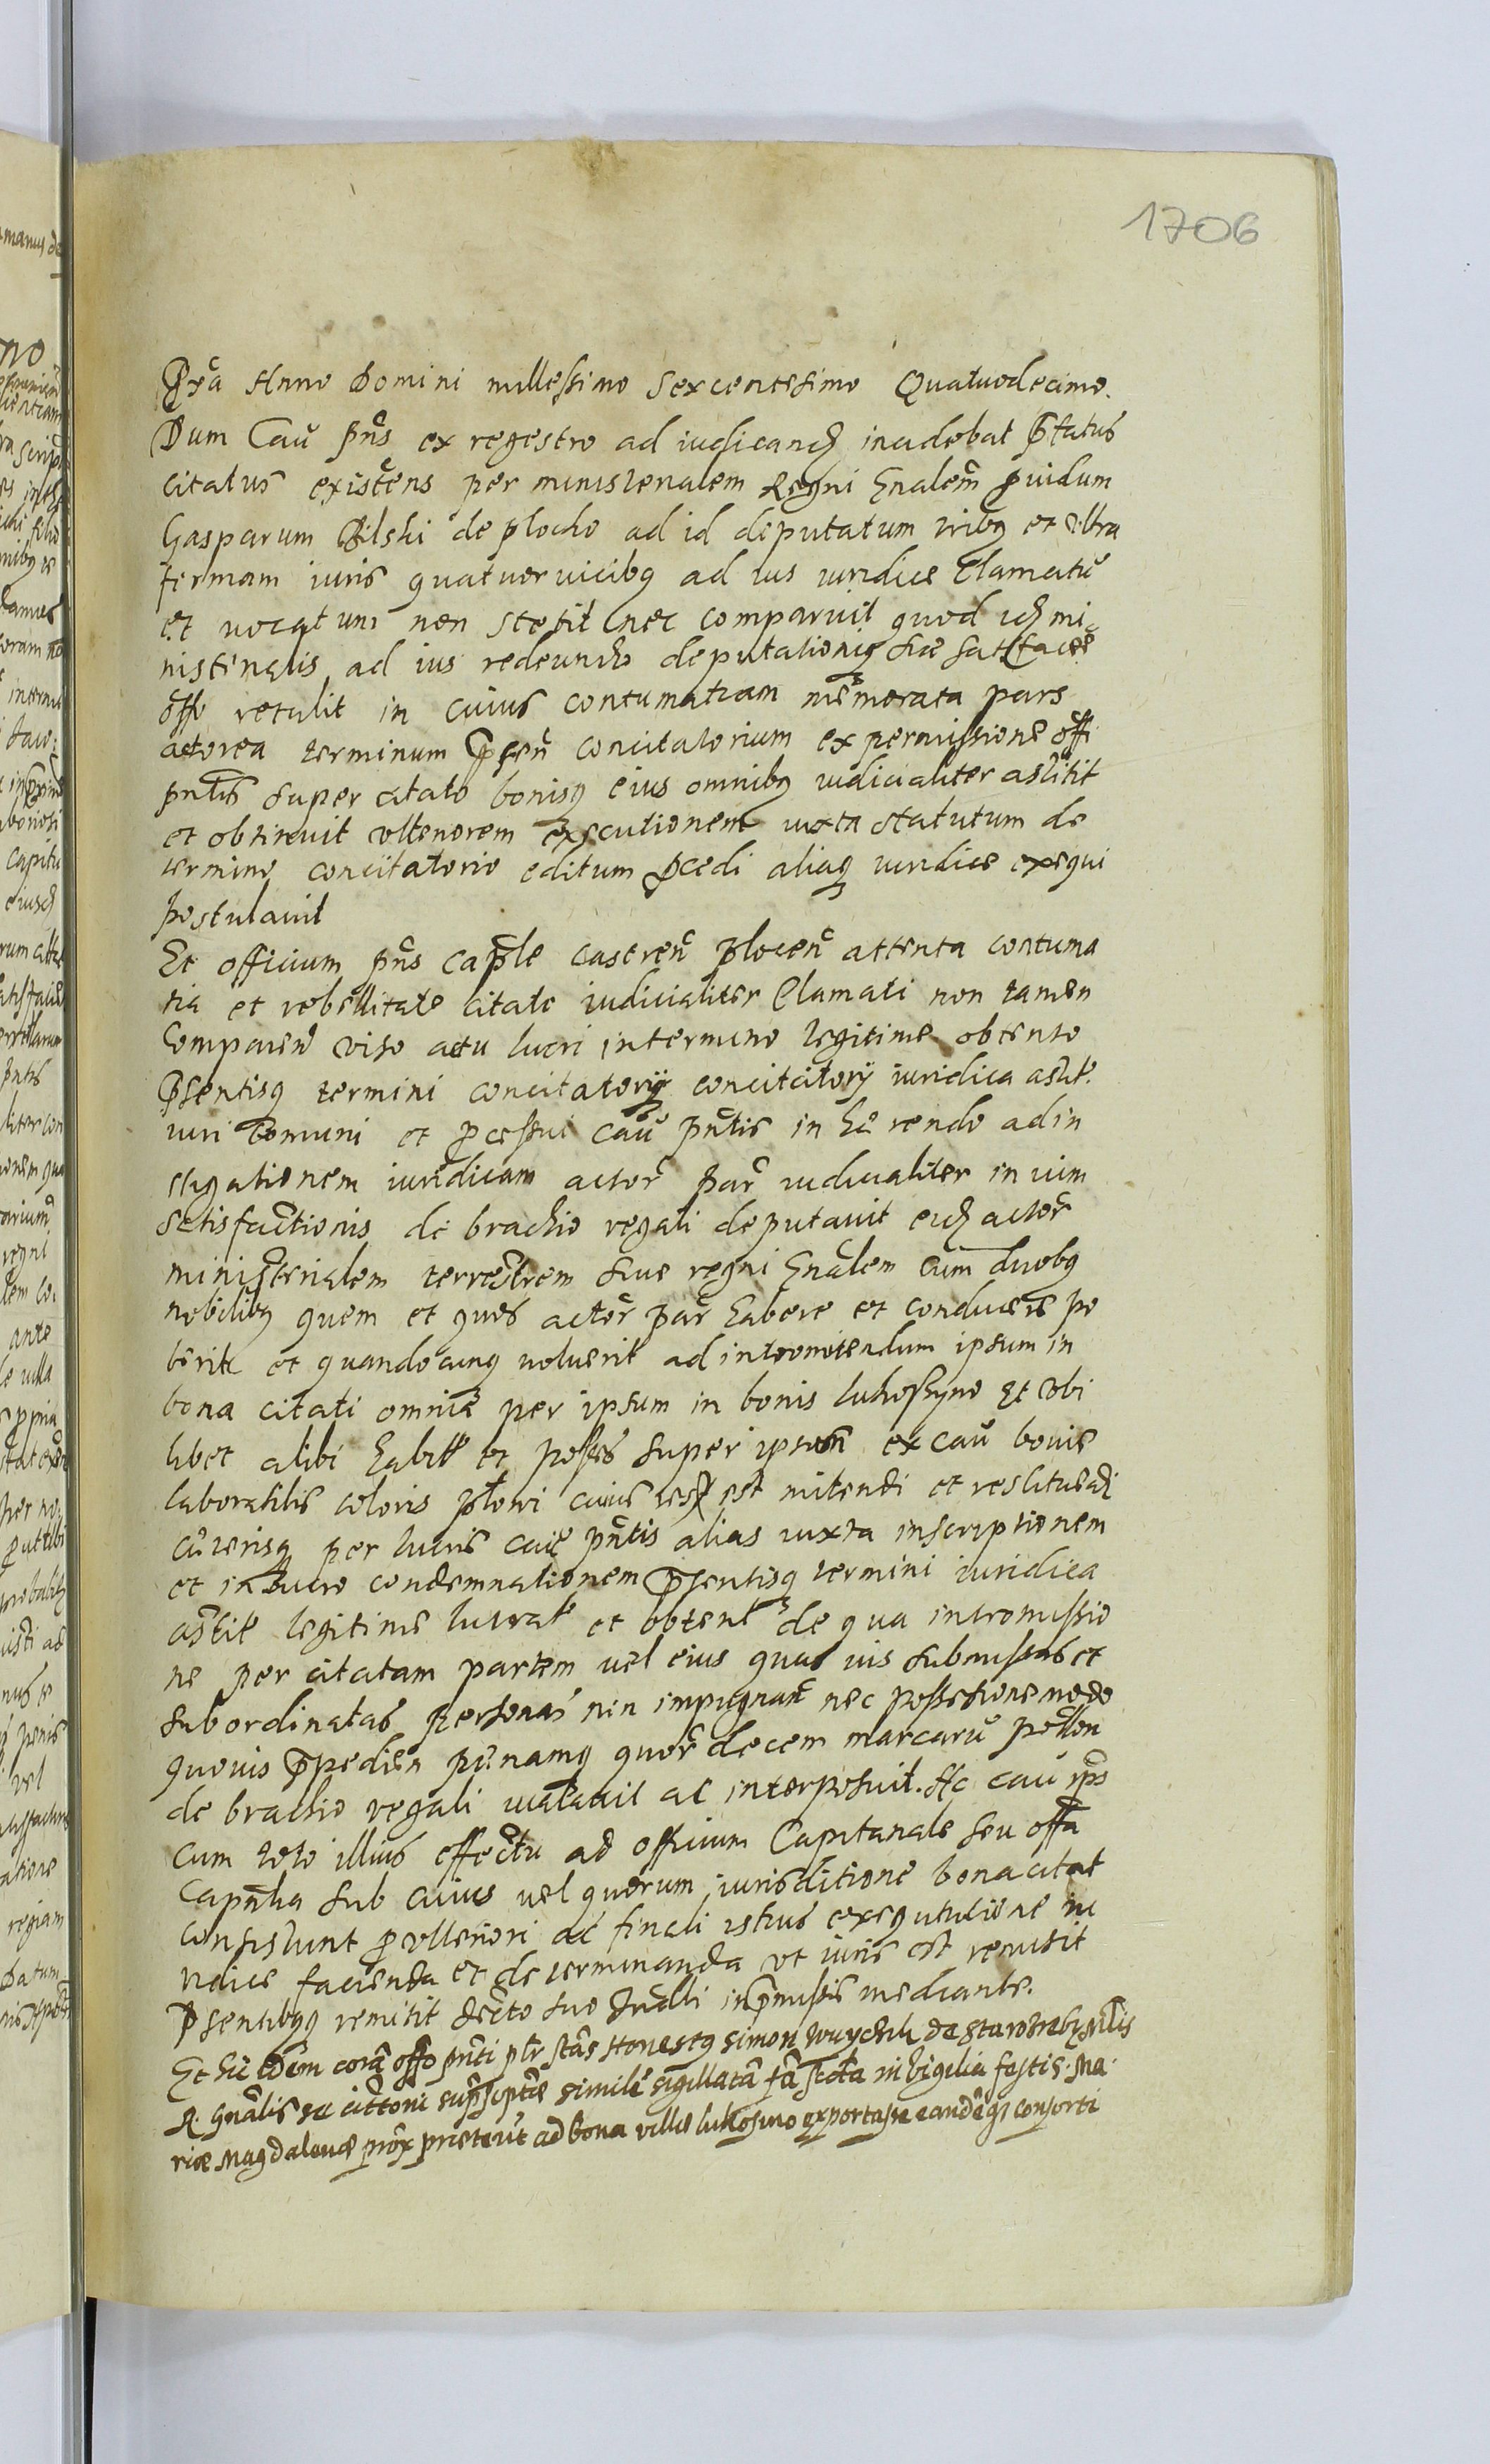 1706
Pxa Anno Domini millessimo Sexcentesimo Quatuodecimo.
Dum Cau pns ex regestro ad iudicand incidebat pstatus
citatus existens per ministerialem Regni Gnalem puidum
Gasparum Bilski de plocko ad id deputatum tribq et vltra
formam iuris quatuor vicibq ad ius iuridice Clamatu
et vocatum non stetit nec comparuit quod id mi-
nisterialis ad ius redeundo deputationisq suae satisfacee
offo retulit in cuius contumatiam memorata pars
actorea terminum psen concitatorium ex permissione offi
pntis super citato bonisq eius omnibq iudicialiter astitit
et obtinuit vlteriorem exscutionem iuxta statutum de
termino concitatorio editum pcedi aliasq iuridice exequi
postulavit
Et officium pns caple castren plocen attenta contuma
tia et rebellitate citate iudicialiter Clamati non tamen
Comparen viso actu lucri in termino legitime obtento
Psentisq termini concitatorij concitcitorij iuridica astit
iuri Comuni et pcessui cau pntis in he rendo ad in
stigationem iuridicam actor par iudicialiter in vim
Satisfactionis de brachio regali deputavit eid actor
ministerialem terrestrem siue regni Gnalem Cum duobq
nobilibq quem et quos actor par habere et conducere po
terit et quandocunq voluerit ad intromitendum ipsum in
bona citati omnia per ipsum in bonis lukoszyno Et vbi
libet alibi habit et posses super ipsum ex cau bovis
laboratilis coloris plowi cuius rest est mitendi et restituedi
ceterisq per lucris cau pntis alias iuxta inscriptionem
et in lucro condemnationem psentisq termini iuridica
astit legitime lucrat et obtent de qua intromissio
ne per citatam partem vel eius quas vis submissas et
subordinatas personas nin impugnat nec possessione modo
quovis ppedien penamq quor decem marcaru pollon
de brachio regali vallavit ac interposuit. Ac cau ips
cum toto illius effectu ad officium Capitanale seu offa
Capnlia sub cuius vel quorum iurisditione bona citat
Consistunt p vlteriori ac finali istius exeqututione iu
ridice facienda et de terminanda vt iuris est remisit
Psentibqq remitit decto suo Inalli in pmissis mediante.
Et hic idem cora offo pnti plr stas Honestq simon woychik de starozreby Mlis
R. Gnalis se cittoni suprascptae simile sigillata fa scta in vigilia festis. Ma
riae Magdalenae prox praeterit ad bona villae lukosino exportasse eandeqs consorti